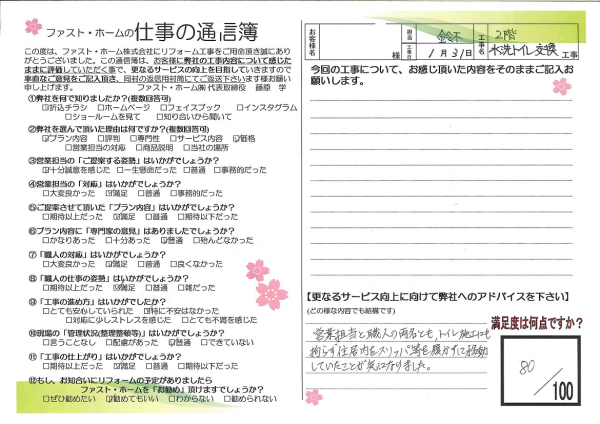 ファスト・ホームの仕事の通信簿
この度は、ファスト・ホーム株式会社にリフォーム工事をご用命頂き誠にあり
がとうございました。この通信簿は、お客様に弊社の工事内容について感じた
ままに評価していただく事で、更なるサービスの向上を目指していきますので
率直なご意見をご記入頂き、同封の返信用封筒にてご返送下さいます様お願い
申し上げます。 ファスト・ホーム㈱ 代表取締役 藤原 学
①弊社を何で知りましたか?(複数回答可)
☑折込チラシ □ホームページ □フェイスブック □インスタグラム
□ショールームを見て □知り合いから聞いて
②弊社を選んで頂いた理由は何ですか?(複数回答可)
☑プラン内容 □評判 □専門性 □サービス内容 ☑価格
□営業担当の対応 □商品説明 □当社の場所
③営業担当の「ご提案する姿勢」はいかがでしょうか?
☑十分誠意を感じた □一生懸命だった □普通 □事務的だった
④営業担当の「対応」はいかがでしょうか?
□大変良かった ☑満足 □普通 □事務的だった
⑤ご提案させて頂いた「プラン内容」はいかがでしょうか?
□期待以上だった ☑満足 □普通 □期待以下だった
⑥プラン内容に「専門家の意見」はありましたでしょうか?
□かなりあった □十分あった ☑普通 □殆んどなかった
⑦「職人の対応」はいかがでしょうか?
□大変良かった ☑満足 □普通 □良くなかった
⑧「職人の仕事の姿勢」はいかがでしょうか?
□期待以上だった ☑満足 □普通 □雑だった
⑨「工事の進め方」はいかがでしたか?
□とても安心していられた ☑特に不安はなかった
□対応に少しストレスを感じた □とても不満を感じた
⑩現場の「管理状況(整理整頓等)」はいかがでしょうか?
□言うことなし □配慮があった ☑普通 □できていない
⑪「工事の仕上がり」はいかがでしょうか?
□期待以上だった ☑満足 □普通 □期待以下だった
⑫もし、お知合いにリフォームの予定がありましたら
ファスト・ホームを「お勧め」頂けますでしょうか?
□ぜひ勧めたい ☑勧めてもいい □わからない □勧められない
お客様名 様
担当 鈴木
工事日 1月31日
工事名 2階 水洗トイレ交換 工事
今回の工事について、お感じ頂いた内容をそのままご記入お
願いします。
【更なるサービス向上に向けて弊社へのアドバイスを下さい】
(どの様な内容でも結構です)
営業担当と職人の両名とも、トイレ施工にも
拘らず住居内をスリッパ等を履かずに移動
していたことが気になりました。
満足度は何点ですか?
80/100